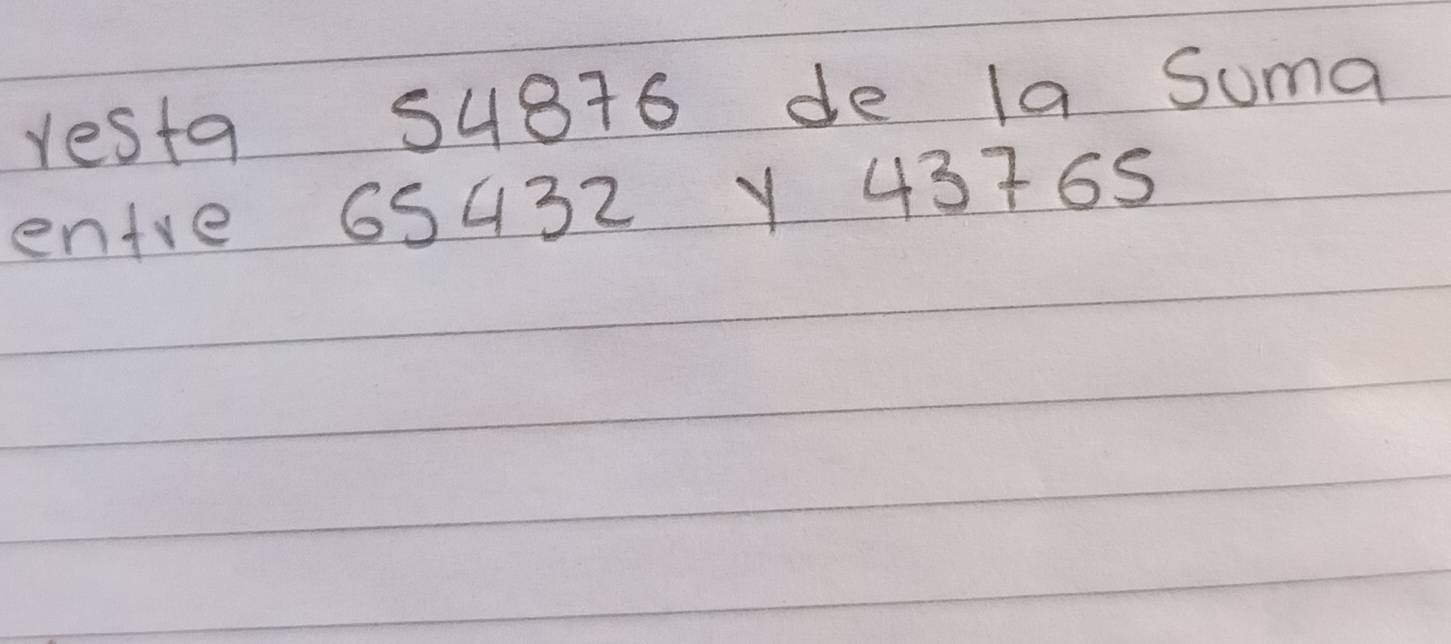 resta 54876 de la suma
entre 65432 y 43765